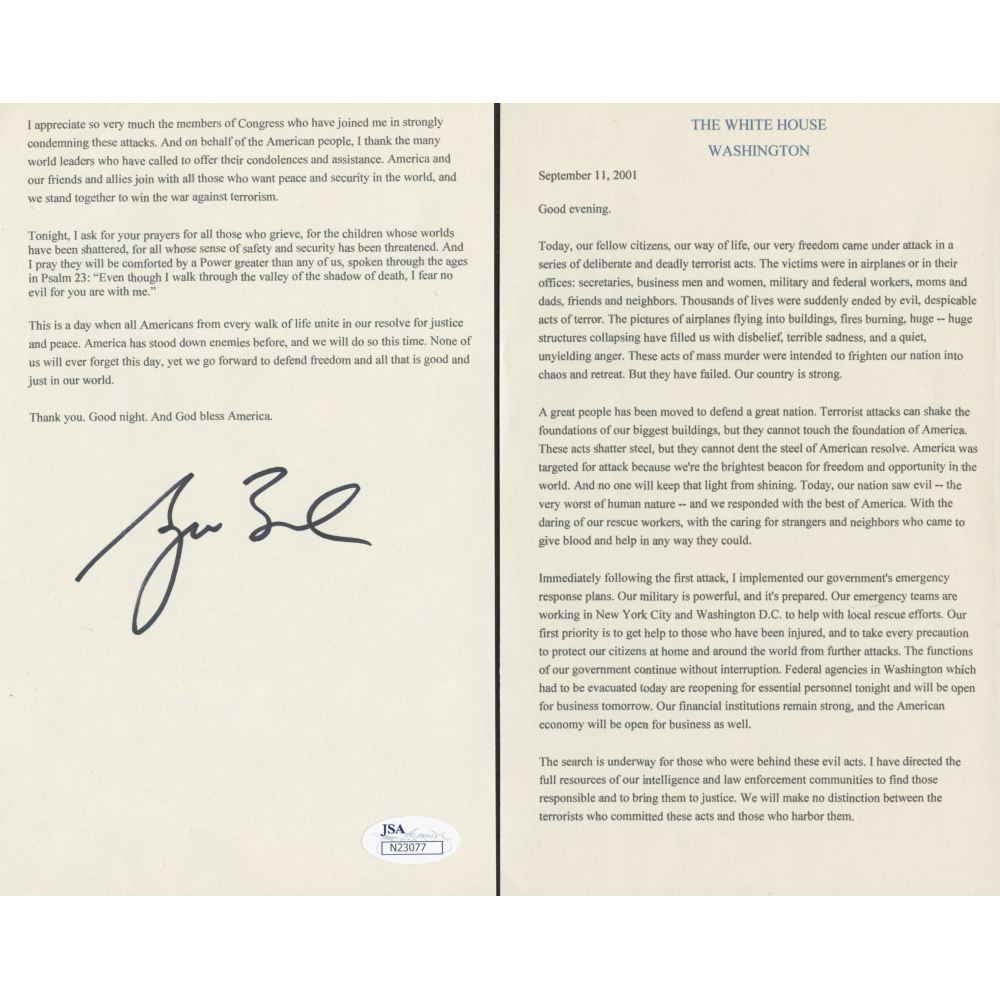 I appreciate so very much the members of Congress who have joined me in strongly
condemning these attacks. And on behalf of the American people, I thank the many
world leaders who have called to offer their condolences and assistance. America and
our friends and allies join with all those who want peace and security in the world, and
we stand together to win the war against terrorism.
Tonight, I ask for your prayers for all those who grieve, for the children whose worlds
have been shattered, for all whose sense of safety and security has been threatened. And
I pray they will be comforted by a Power greater than any of us, spoken through the ages
in Psalm 23: “Even though I walk through the valley of the shadow of death, I fear no
evil for you are with me.”
This is a day when all Americans from every walk of life unite in our resolve for justice
and peace. America has stood down enemies before, and we will do so this time. None of
us will ever forget this day, yet we go forward to defend freedom and all that is good and
just in our world.
Thank you. Good night. And God bless America.
JSA
N23077
THE WHITE HOUSE
WASHINGTON
September 11, 2001
Good evening.
Today, our fellow citizens, our way of life, our very freedom came under attack in a
series of deliberate and deadly terrorist acts. The victims were in airplanes or in their
offices: secretaries, business men and women, military and federal workers, moms and
dads, friends and neighbors. Thousands of lives were suddenly ended by evil, despicable
acts of terror. The pictures of airplanes flying into buildings, fires burning, huge -- huge
structures collapsing have filled us with disbelief, terrible sadness, and a quiet,
unyielding anger. These acts of mass murder were intended to frighten our nation into
chaos and retreat. But they have failed. Our country is strong.
A great people has been moved to defend a great nation. Terrorist attacks can shake the
foundations of our biggest buildings, but they cannot touch the foundation of America.
These acts shatter steel, but they cannot dent the steel of American resolve. America was
targeted for attack because we're the brightest beacon for freedom and opportunity in the
world. And no one will keep that light from shining. Today, our nation saw evil -- the
very worst of human nature -- and we responded with the best of America. With the
daring of our rescue workers, with the caring for strangers and neighbors who came to
give blood and help in any way they could.
Immediately following the first attack, I implemented our government's emergency
response plans. Our military is powerful, and it's prepared. Our emergency teams are
working in New York City and Washington D.C. to help with local rescue efforts. Our
first priority is to get help to those who have been injured, and to take every precaution
to protect our citizens at home and around the world from further attacks. The functions
of our government continue without interruption. Federal agencies in Washington which
had to be evacuated today are reopening for essential personnel tonight and will be open
for business tomorrow. Our financial institutions remain strong, and the American
economy will be open for business as well.
The search is underway for those who were behind these evil acts. I have directed the
full resources of our intelligence and law enforcement communities to find those
responsible and to bring them to justice. We will make no distinction between the
terrorists who committed these acts and those who harbor them.